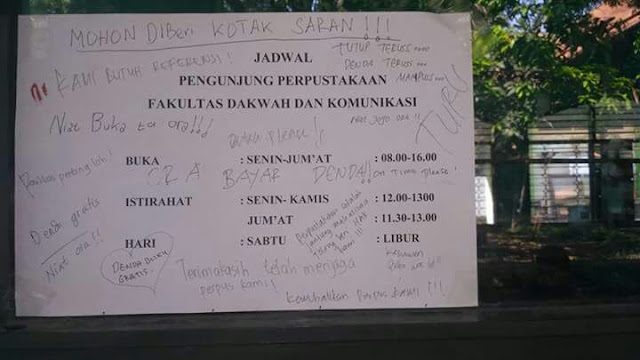 MOHON DIBERI KOTAK SARAN !!!
KAMI BUTUH REFERENSI !
JADWAL
PENGUNJUNG PERPUSTAKAAN
FAKULTAS DAKWAH DAN KOMUNIKASI
TUTUP TERUS....
DENDA TERUS....
MAMPUS...
TURU
Niat Buka ta ora!!!
please!!
BUKA : SENIN-JUM'AT : 08.00-16.00
ORA BAYAR DENDA!!
on time please!
penting loh!
ISTIRAHAT : SENIN- KAMIS : 12.00-1300
JUM'AT : 11.30-13.00
Denda gratis
Niat ora!!
HARI : SABTU : LIBUR
DENDA BUKU
GRATIS.
Perpustakaan adalah
jantung mahasiswa
kami !!!
Terimakasih telah menjaga
perpus kami!!
Kembalikan Perpus Kami!!!